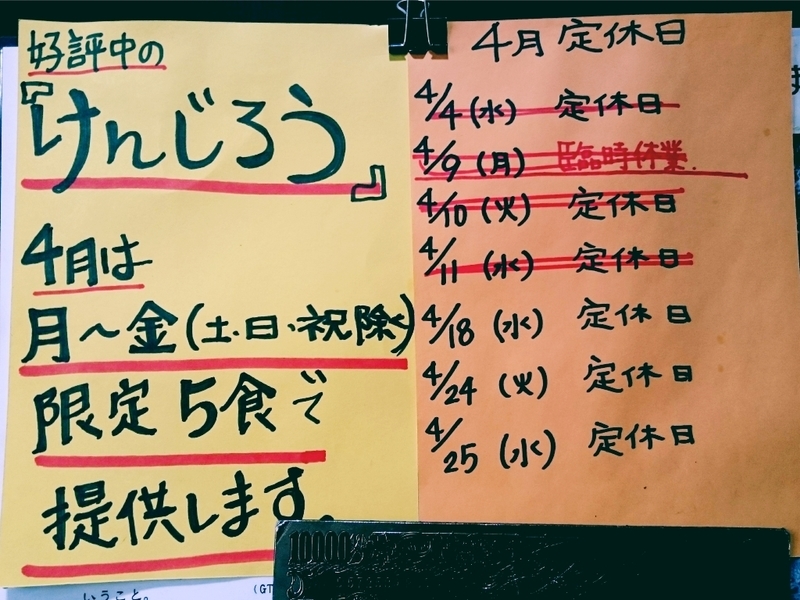 好評中の
『けんじろう』
4月は
月〜金(土・日・祝除く)
限定5食で
提供します。
4月定休日
4/4(水) 定休日
4/9(月) 臨時休業.
4/10(火) 定休日
4/11(水) 定休日
4/18(水) 定休日
4/24(火) 定休日
4/25(水) 定休日
いうこと。
(GT